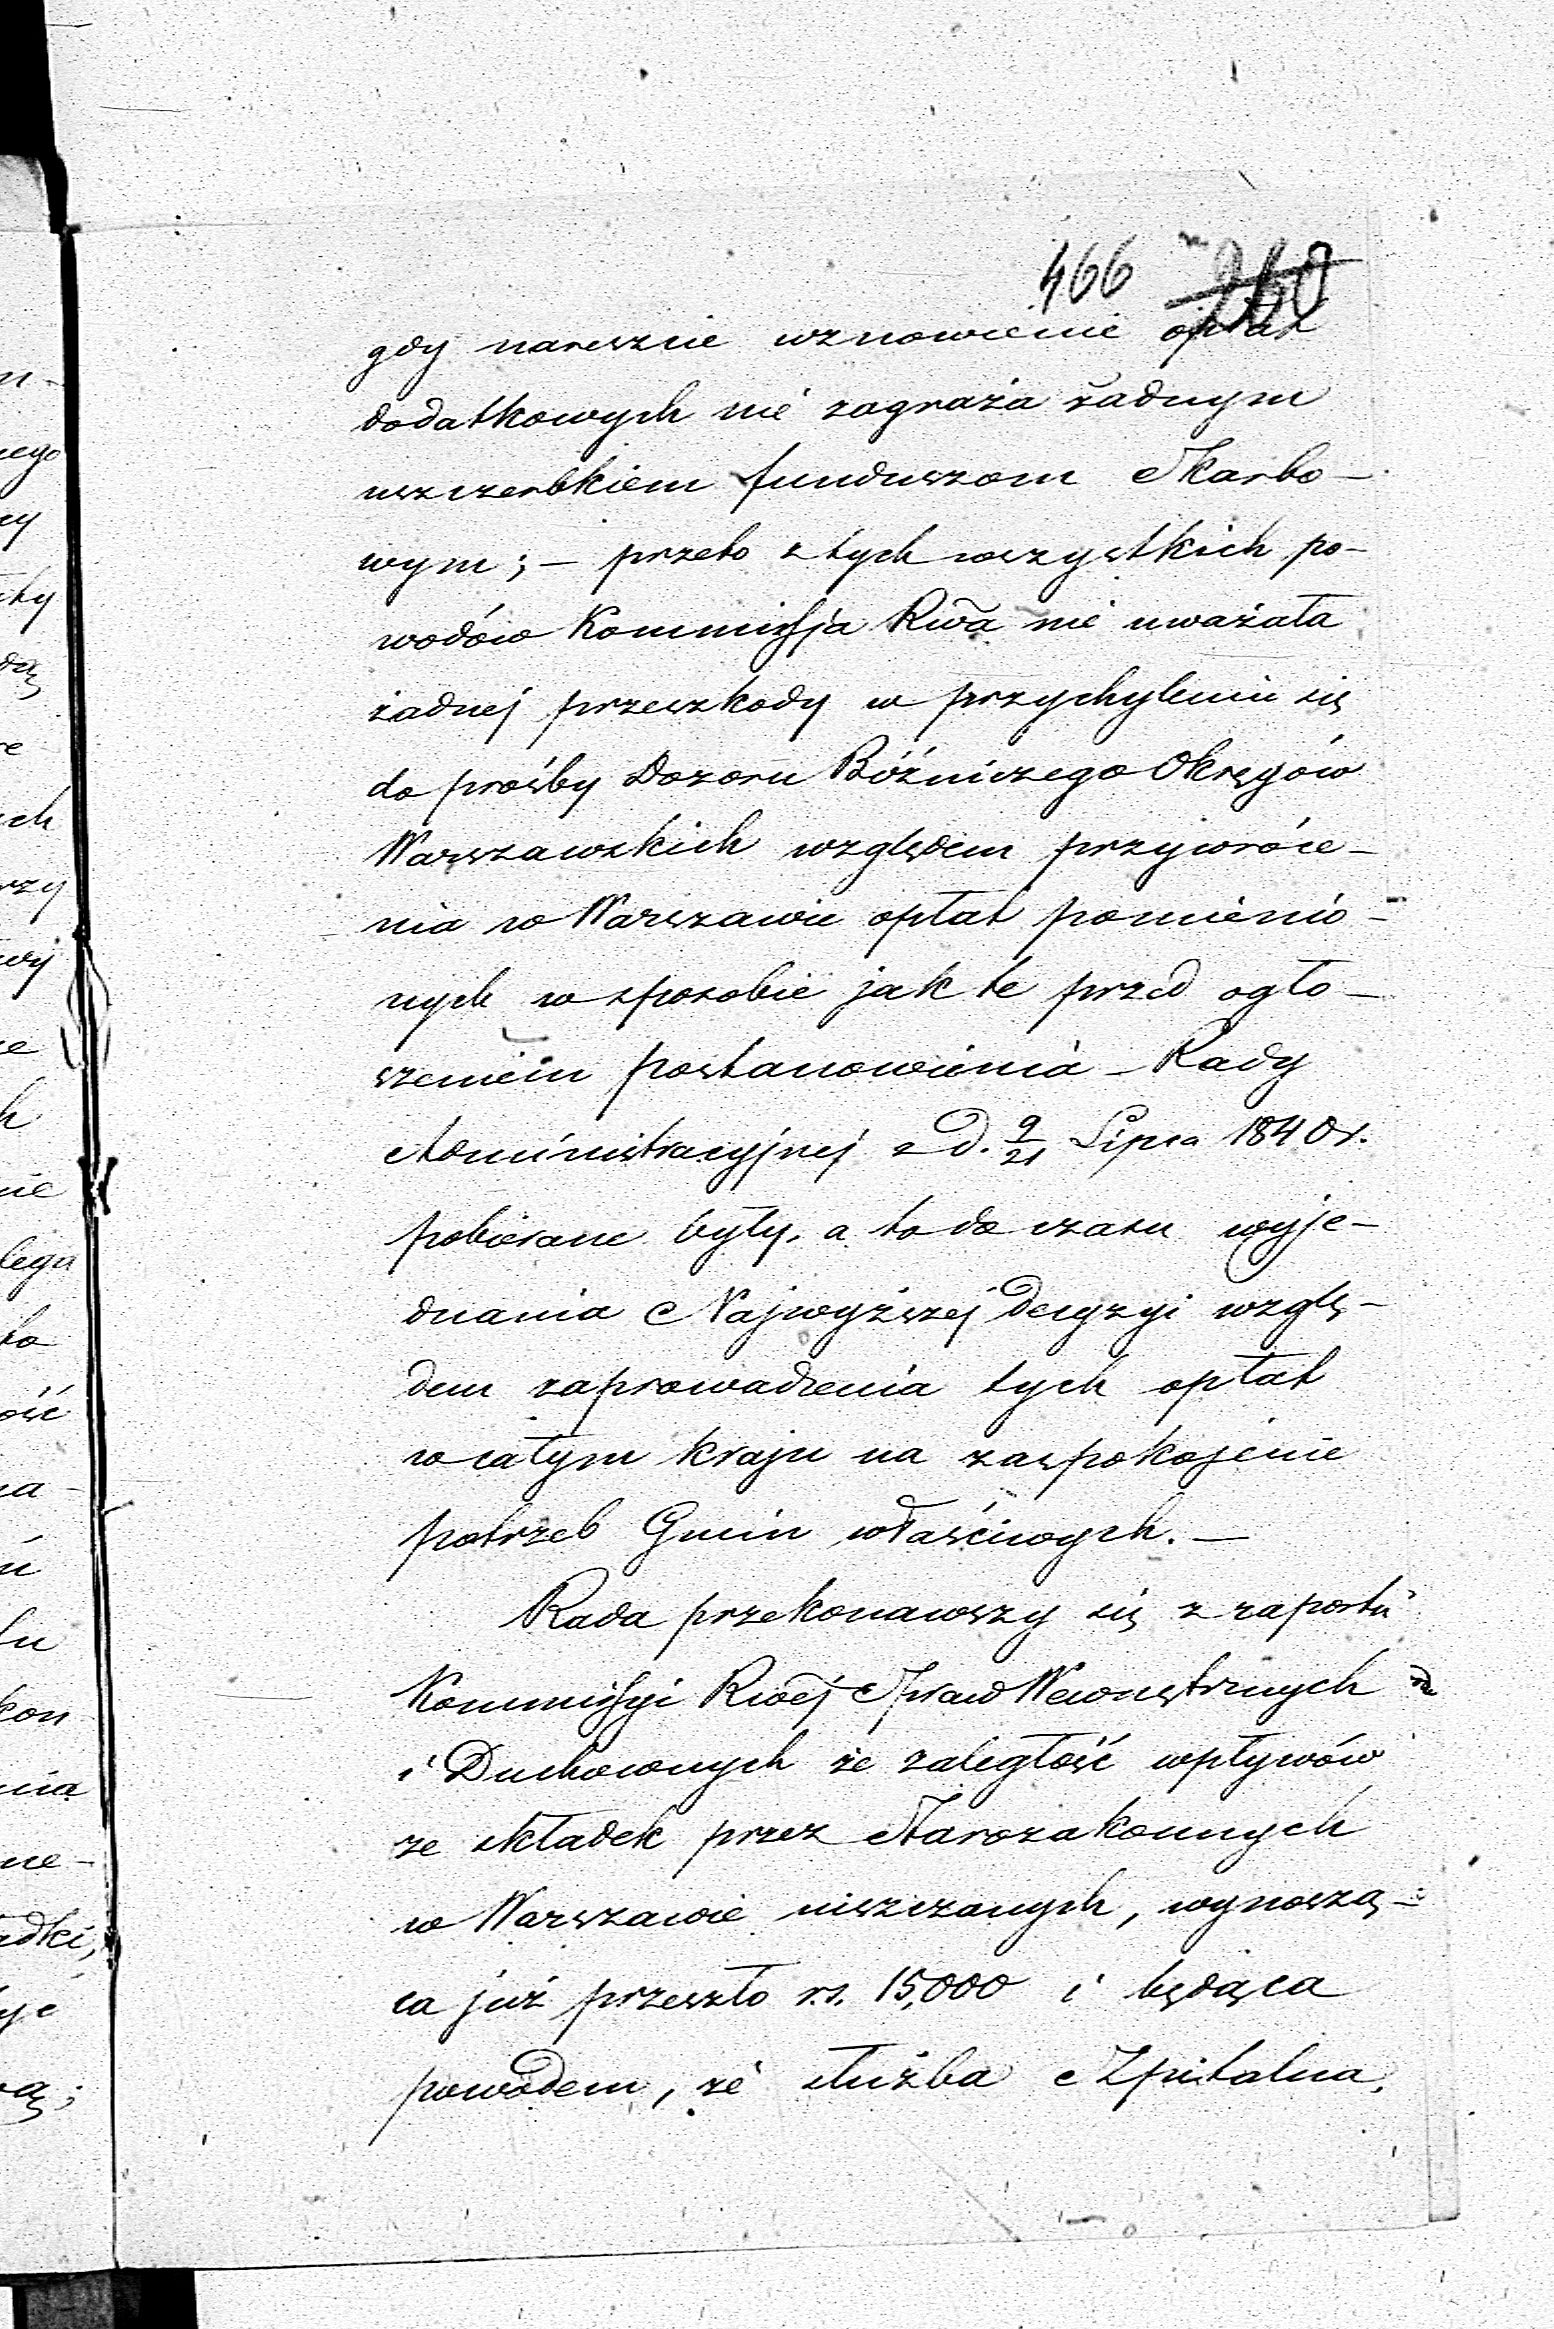 466 260
gdy nareszcie wznowienie opłat
dodatkowych nie zagraża żadnym
uszczerbkiem funduszom Skarbo-
wym; - przeto z tych wszystkich po-
wodów Kommissja Rwa nie uważała
żadnej przeszkody w przychyleniu się
do prośby Dozoru Bóźniczego Okręgów
Warszawskich względem przywróce-
nia w Warszawie opłat pomienio-
nych w sposobie jak te przed ogło-
szeniem postanowienia Rady
Administracyjnej z d. 9/21 Lipca 1840 r.
pobierane były, a to do czasu wyje-
dnania Najwyższej decyzyi wzglę-
dem zaprowadzenia tych opłat
w całym kraju na zaspokojenie
potrzeb Gmin właściwych. -
Rada przekonawszy się z raportu
Kommissyi Rwej Spraw Wewnętrznych
i Duchownych że zaległość wpływów
ze składek przez Starozakonnych
w Warszawie uiszczanych, wynoszą-
ca już przeszło r.s. 15,000 i będąca
powodem, że służba Szpitalna,
n-
ego
cy
da
re
ch
rzy
wy
h
nie
lego
to
ość
na-
tu
kon
nia
ne-
adki,